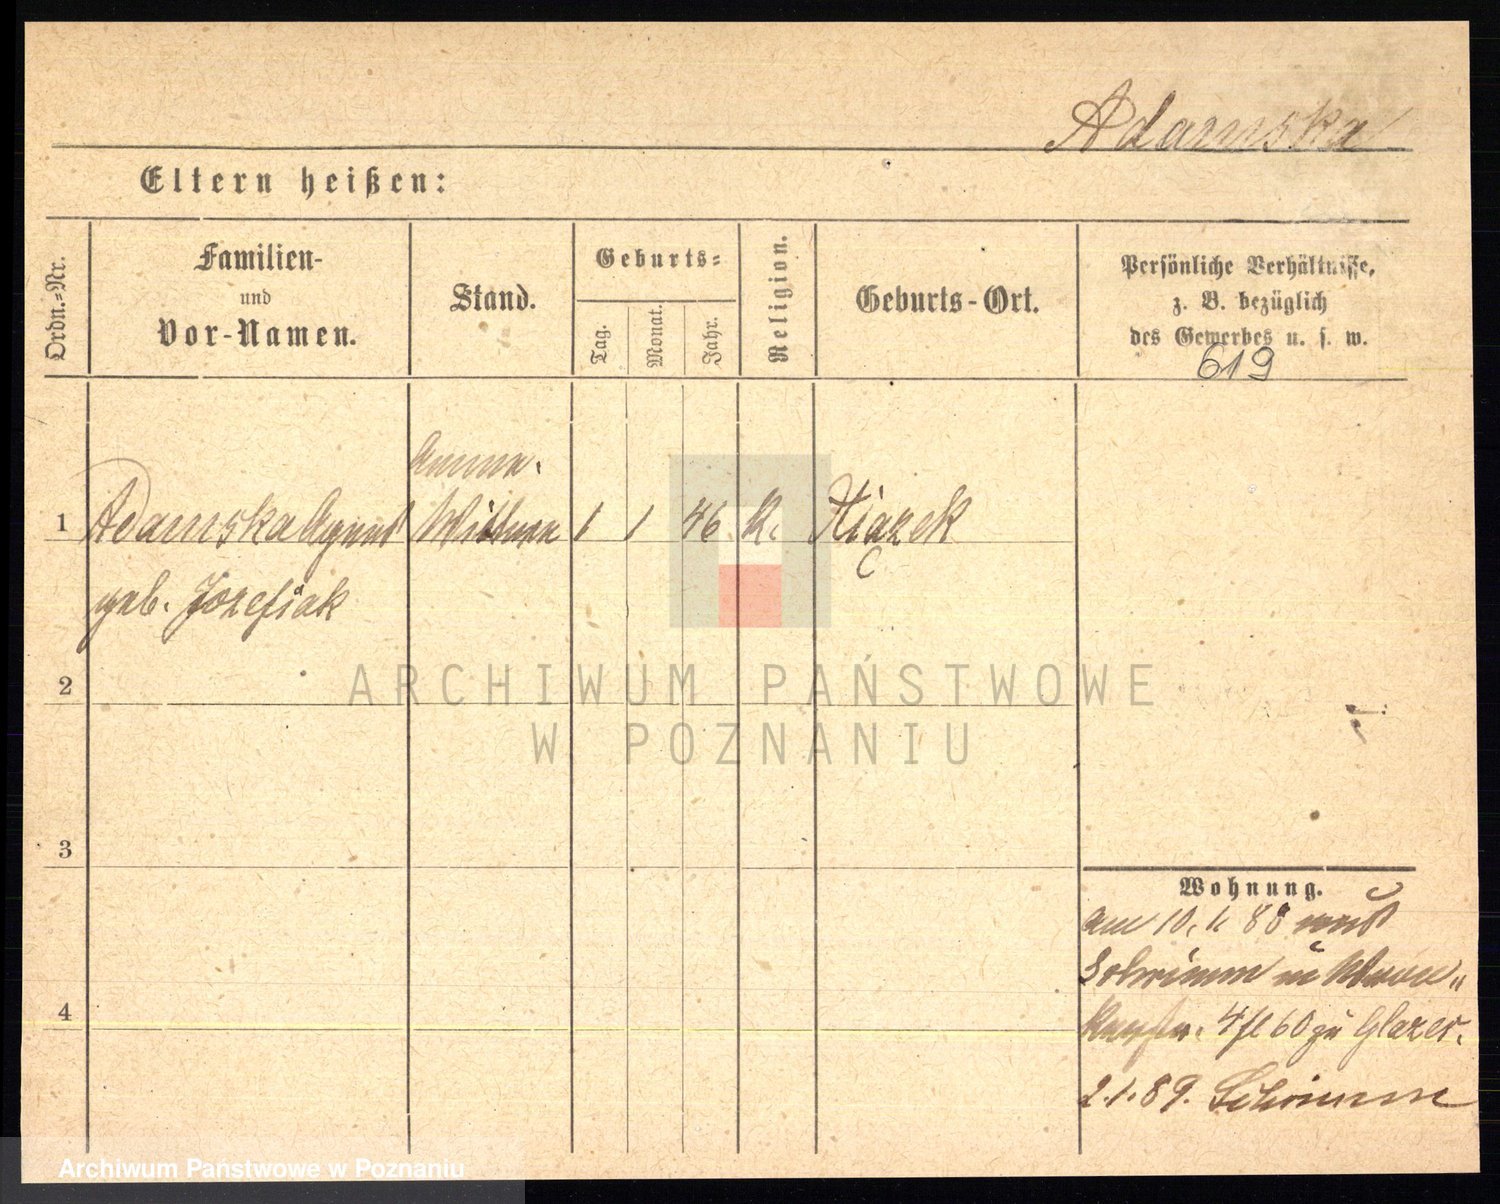 Adamska
Eltern heißen:
Ordn.=Nr.
Familien-
und
Vor-Namen.
Stand.
Geburts=
Tag.
Monat.
Jahr.
Religion.
Geburts-Ort.
Persönliche Verhältnisse,
z. B. bezüglich
des Gewerbes u. s. w.
619
1
Adamska Agnes
geb. Jozefiak
Wittwe
1
1
46
K.
2
3
4
Wohnung.
am 10. 1. 88
Schrimm
4/5 60 zu Glazer.
2.1.89. Schrimm
ARCHIWUM PAŃSTWOWE
W POZNANIU
Archiwum Państwowe w Poznaniu